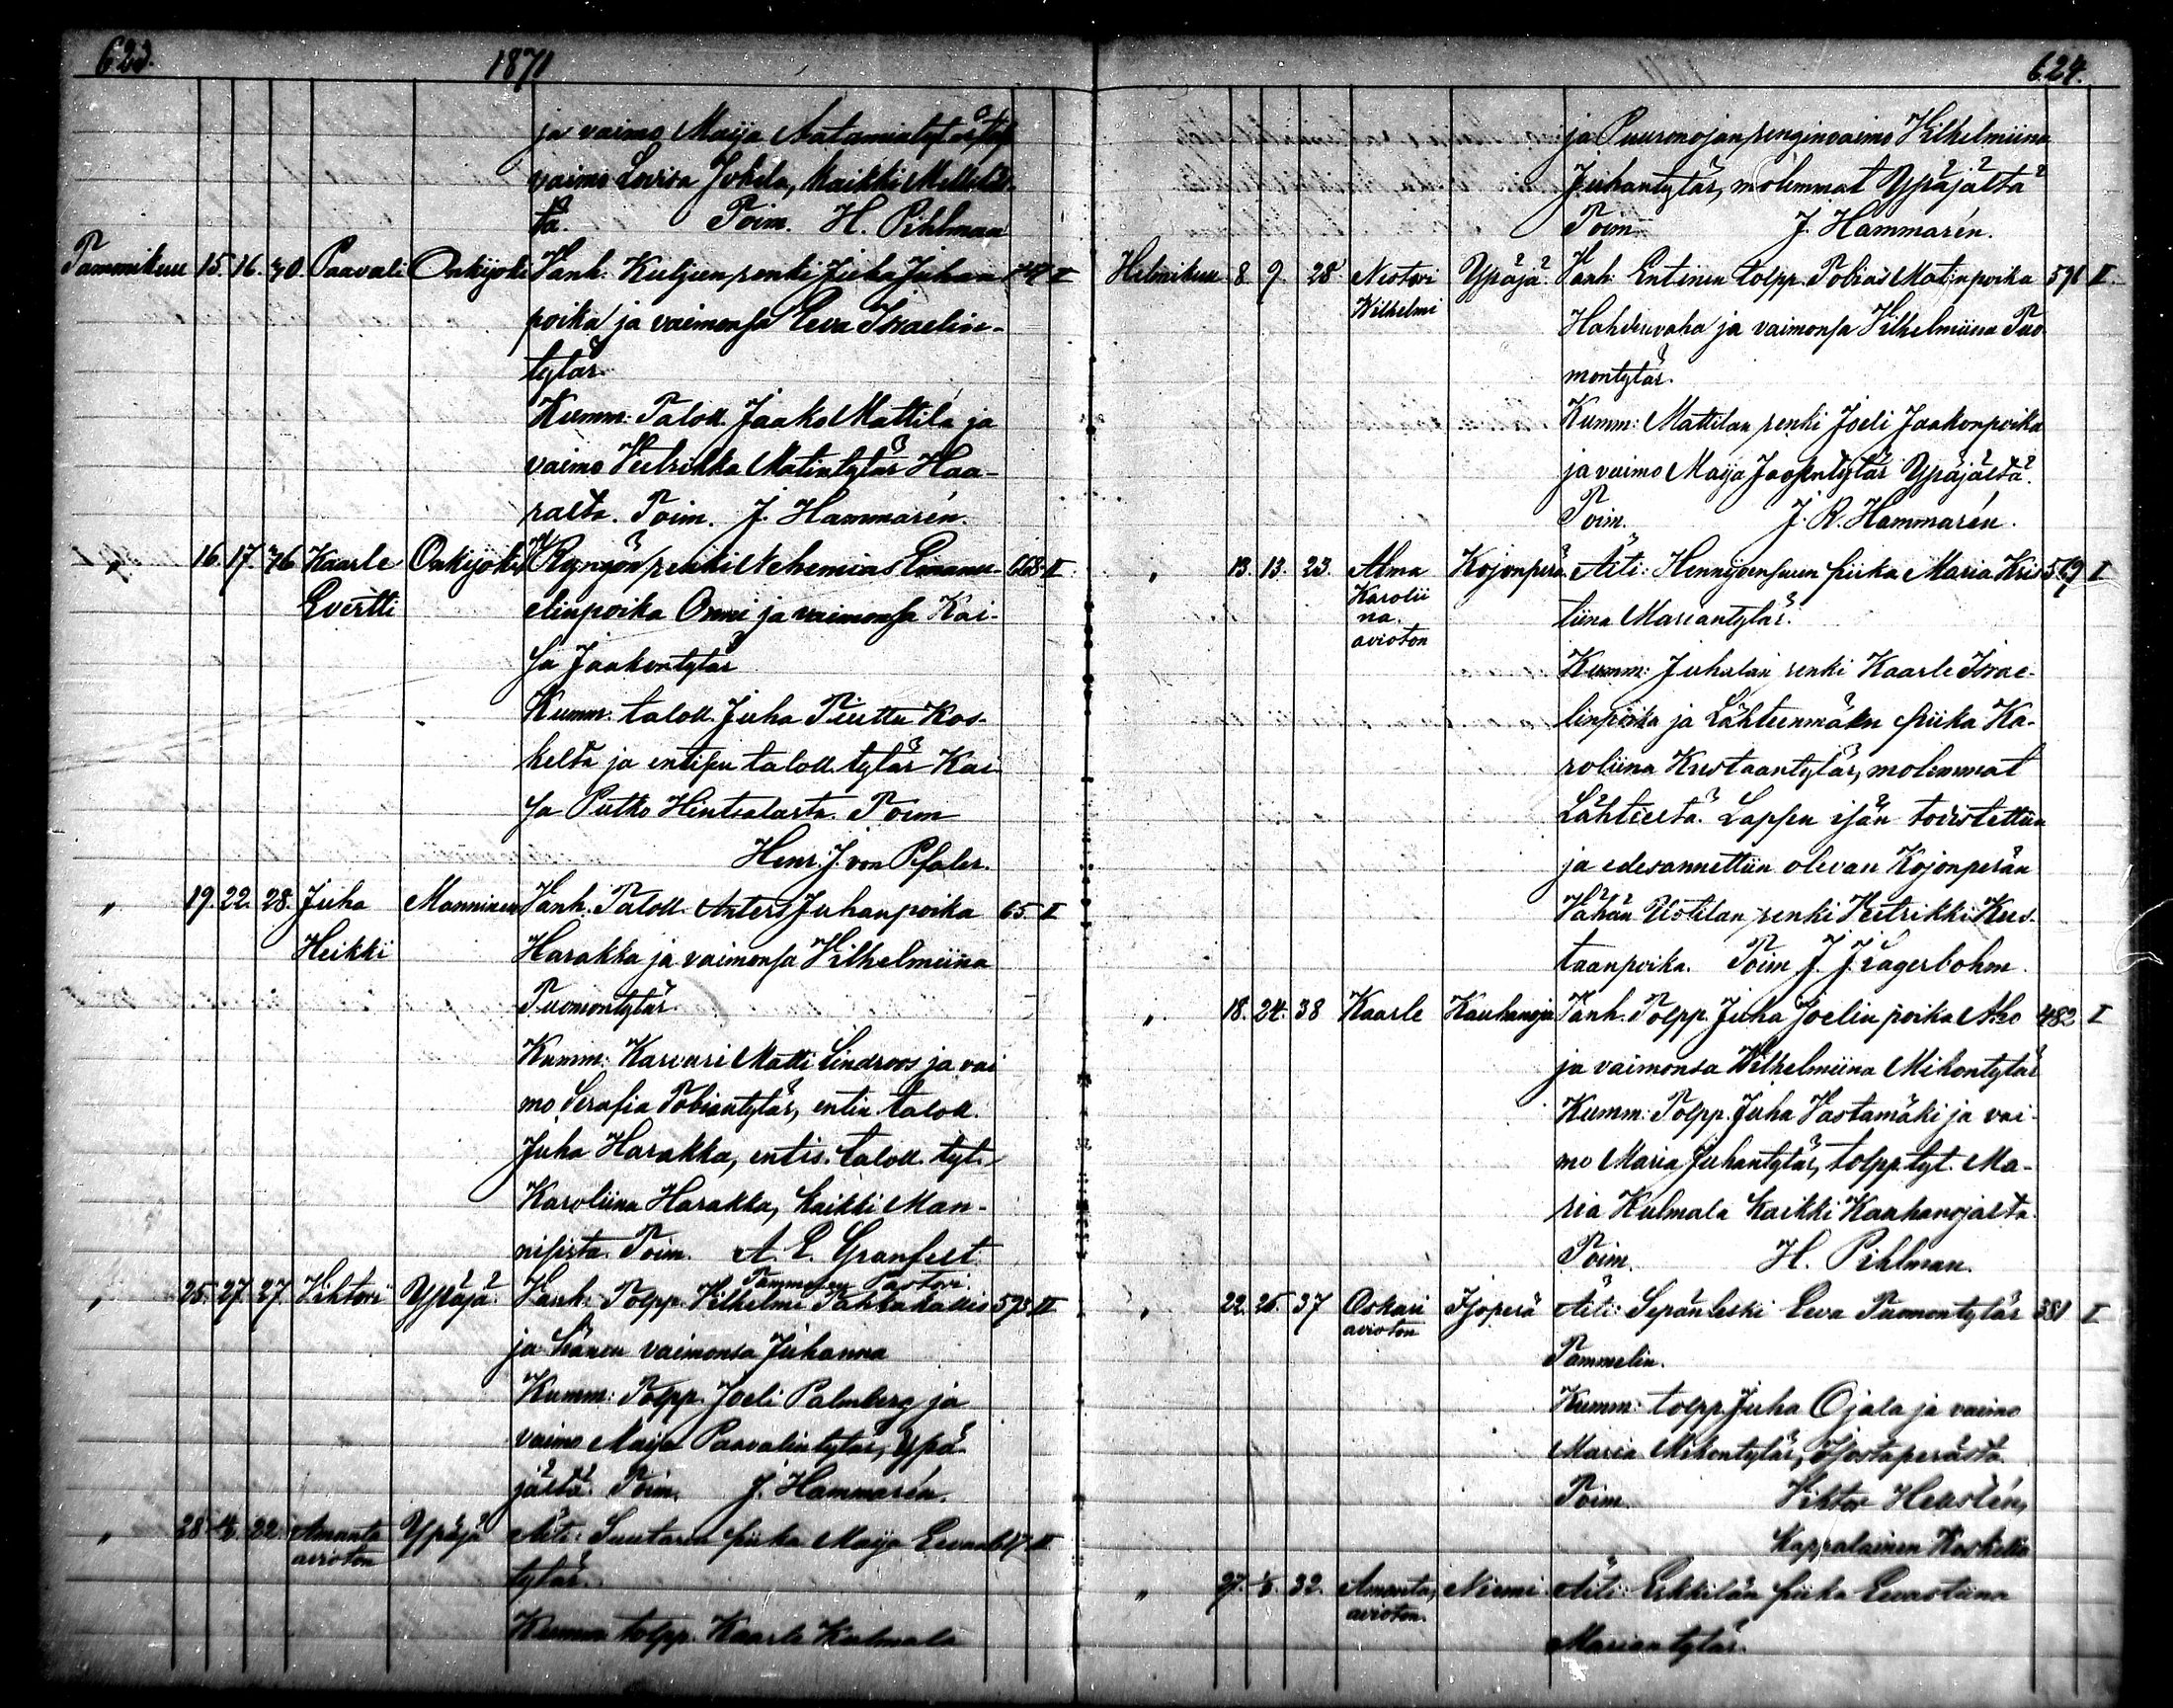 623.
1871
ja vaimo Maija Aatamintytär,
vaimo Lovisa Jokela, kaikki
tä. Poim. H. Pihlman
Tammikuu 15. 16. 30. Paavali Onkijoki Vanh. Kuljun renki Juha Juhan I
poika ja vaimonsa Eeva Israelin-
tytär.
Kumm: Taloll. Jaako Mattila ja
vaimo Heetrikka Matintytär Haa-
ralta. Poim. J. Hammarén.
" 16. 17. 36 Kaarle Onkijoki renki Nehemias Emanu- 553 II
Evertti elinpoika Onni ja vaimonsa Kai-
sa Jaakontytär
Kumm: taloll. Juha Piuttu Kos-
kelta ja entisen taloll. tytär Kai
sa Putto Hintsalasta. Poim
Henr. J. von Pfaler.
" 19. 22. 28. Juha Manninen Vanh. Taloll. Anters Juhanpoika 65 I
Heikki Harakka ja vaimonsa Vilhelmiina
Tuomontytär.
Kumm: Karvari Matti Lindroos ja vai
mo Serafia Tobiantytär, entin taloll.
Juha Harakka, entis. taloll. tyt.
Karoliina Harakka, kaikki Man-
nisista. Poim. A. E. Granfelt
Tammelan Pastori
" 25. 27. 27. Vihtori Ypäjä. Vanh: Tolpp. Vilhelmi Pahkakallio 593 II
ja hänen vaimonsa Juhanna
Kumm: Tolpp. Joeli Palmberg ja
vaimo Maija Paavalintytär, Ypä-
jältä. Poim. J. Hammarén.
" 28. 22. Amanta Ypäjä Äiti: Suutarin piika Maija Eevan II
avioton tytär.
Kumm tolpp. Kaarle Kulmala
624.
ja Puuronojan renginvaimo Vilhelmiina
Juhantytär, molemmat Ypäjältä
Poim J. Hammarén.
Helmikuu 8 9. 28 Nestori Ypäjä. Vanh: Entinen tolpp. Tobias Matinpoika 591 II.
Wilhelmi Hahdenvaha ja vaimonsa Vilhelmiina Tuo
montytär.
Kumm: Mattilan renki Joeli Jaakonpoika
ja vaimo Maija Jaopintytär Ypäjältä.
Poim. J. R. Hammarén.
" 13. 13. 23. Alma Kojonperä. Äiti: piika Maria Kris I
Karolii
na. tiina Mariantytär.
avioton
Kumm: Juhalan renki Kaarle Israe-
linpoika ja Lähteenmäen piika Ka-
roliina Kustaantytär, molemmat
Lähteeltä. Lapsen isän todistettiin
ja edesannettiin olevan Kojonperän
Vähän Uotilan renki Heetrikki Kus-
taanpoika. Poim J. J. Lagerbohm.
" 18. 24. 38 Kaarle Kauhanoja Vanh. Tolpp. Juha Joelin poika Aho 482 I
ja vaimonsa Wilhelmiina Mikontytär
Kumm: Tolpp. Juha Vastamäki ja vai-
mo Maria Juhantytär, tolpp. tyt. Ma-
ria Kulmala kaikki Kauhanojalta.
Poim. H. Pihlman.
" 22. 25. 37 Oskari Isoperä Äiti: Sepänleski Eeva Tuomontytär 381 I
avioton
Tammelin.
Kumm: tolpp. Juha Ojala ja vaimo
Maria Mikontytär, Isostaperästä
Poim. Viktor Hellstén,
Kappalainen Koskella
" 27. 32. Amanta, Niemi Äiti: Erkkilän piika Eevastiina
avioton.
Mariantytär.